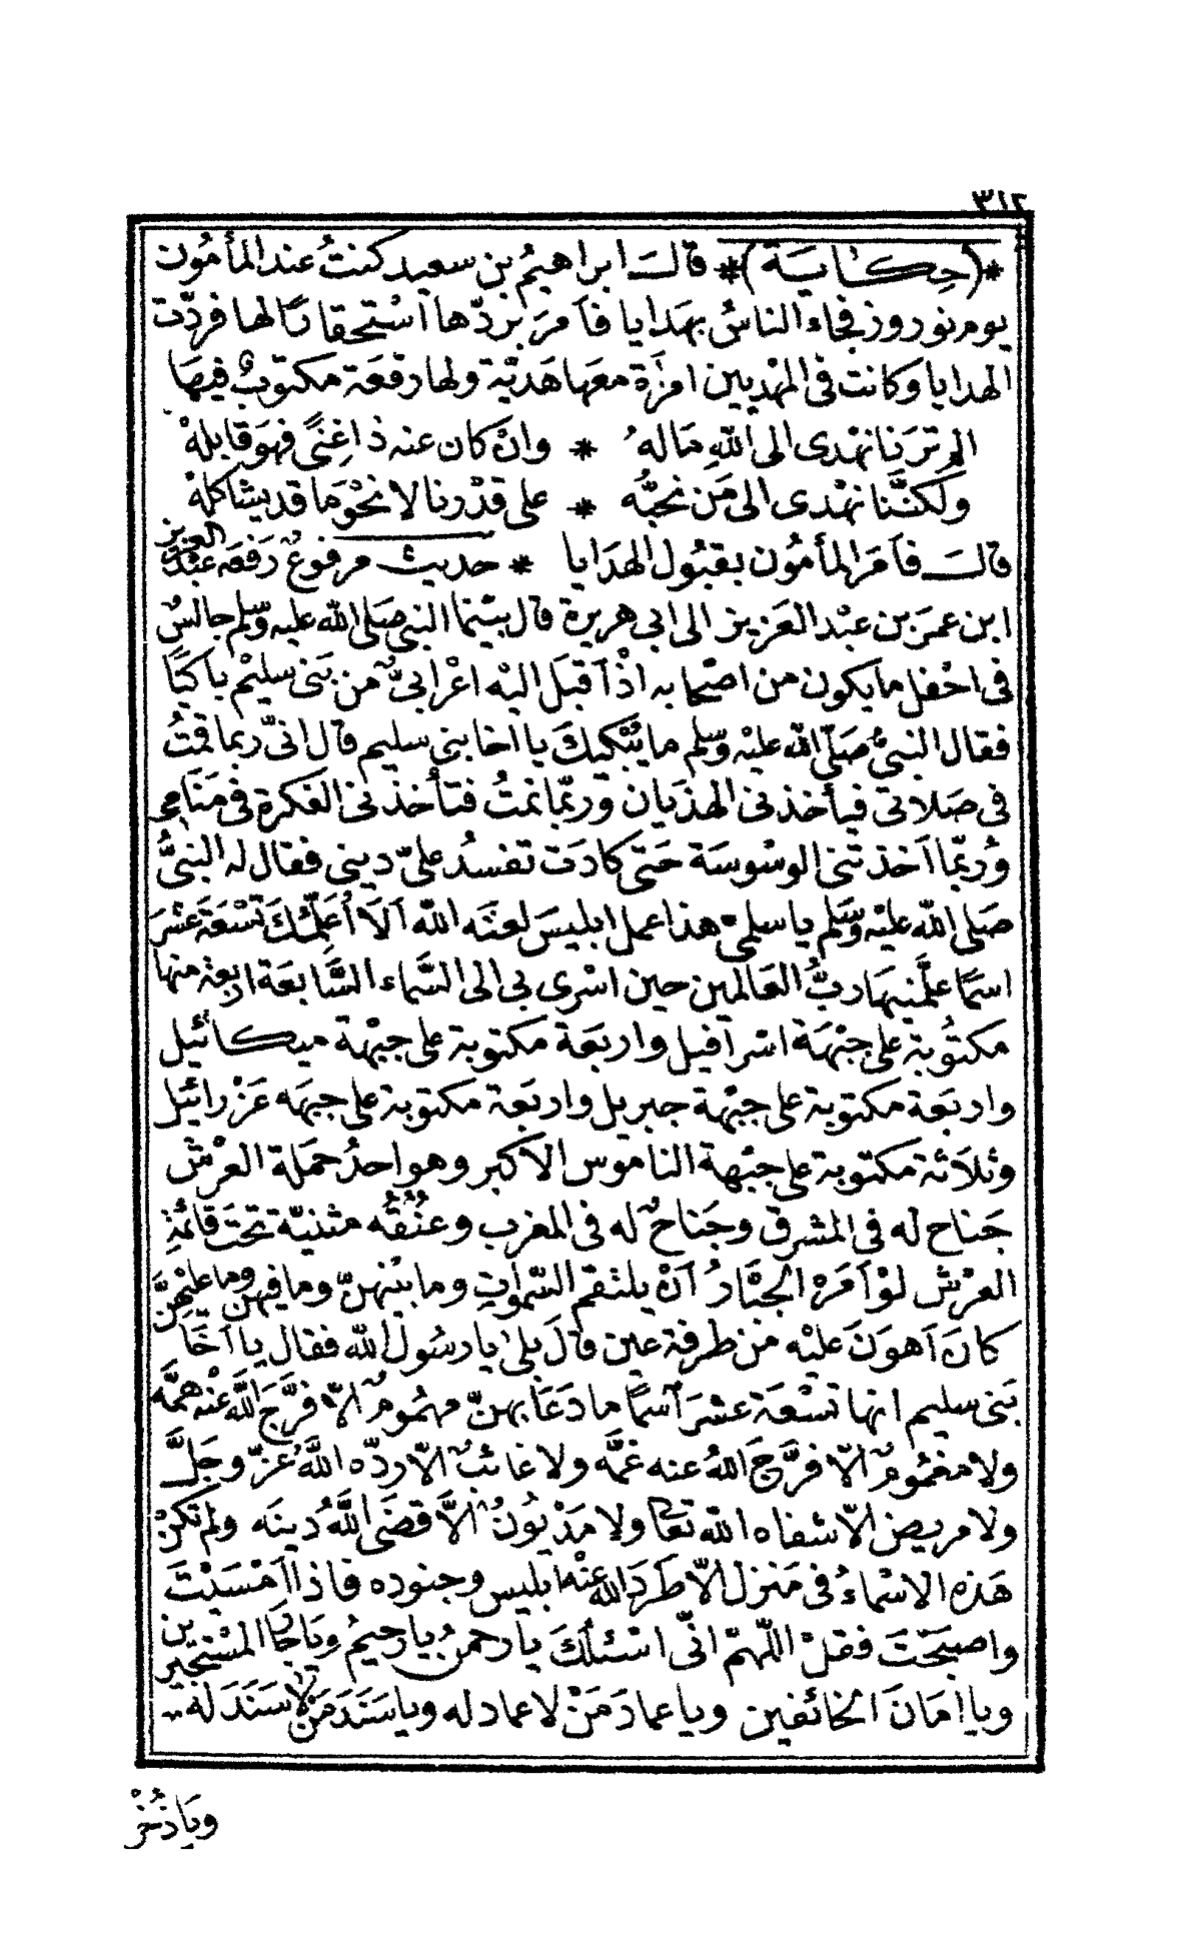 ٣١٢
*(حِكَايَة)* قالَ ابراهيمُ بن سعيد كنتُ عند المأمُون
يوم نوروز فجاء الناسُ بهَدايا فاَمرَ بَردّها اسْتحقارًا لها فردّت
الهدايا وكانت فى المهْديين امرَأة معَها هَديّة ولها رقعَة مكتوبٌ فيهَا
الم ترَنا نهْدى الى اللّهِ مَاله * وانْ كان عنه ذاغِنًى فهوَ قابلهْ
ولَكنَّنا نهْدى الى مَن نحبُّه * على قدْرنا لا نحْوَ مَا قد يشاكلهْ
قالَ فاَمَر المأمُون بقبُول الهدَايا * حديث مرفوعٌ رَفعَه عبْدُ العزيز
ابن عمرَ بن عبْد العَزيز الى ابي هريرة قال بيْنما النبي صَلى الله عليه وسّلم جالسٌ
فى احْفل ما يكون من اصْحابه اذْ اَقبَل اليْه اعْرَابيٌّ من بَنى سليْم باكيًا
فقال النبيُّ صَلّى الله عليْه وسّلم ما يُبْكيكَ يا اخا بني سليم قال انّى ربما قمتُ
فى صَلاتى فيأخذنى الهذيان ورتمّا نمتُ فتأخذنى الفكرة فى مَنَامى
ورُبّما اَخذتنى الوسْوسَة حَتى كادَت تفسدُ علىّ دينى فقال له النبىُّ
صَلى اللّه عليْه وسَّلم يا سلمىّ هذا عمل ابليسَ لعنَه اللّه اَلَا اُعَلِّمُكَ تسْعَةَ عشرَ
اسمًا علّمَنيهَا ربُّ العَالمين حين اسْرى بى الى السَّماء السَّابعَة اربعة منها
مكتوُبة على جبْهَة اسْرافيل واربَعَة مكتوبة على جبْهة ميكائيل
واربَعَة مكتوبة على جبْهة جبريل واربَعَة مكتوبة على جبهَه عَزْرائيل
وثلَاثة مكتوبة على جبْهة الناموس الاكبر وهو احدُ حمَلة العرْش
جَناح له فى المشرق وجَناحٌ له فى المغرب وعنُقُه مثنيّة تحتَ قائمةِ
العرْش لوْ اَمَرهُ الجبّارُ اَنْ يلتقم السّمواتِ وما بيْنهنّ وما فيهن وما عليْهنَّ
كانَ اَهونَ عليْه من طرفة عين قالَ بلىٰ يا رسُول الله فقال يا اَخَا
بَنى سليم انها تسْعَة عشرَ اسمًا ما دَعَا بهنّ مهمُومٌ الّا فرَّجَ اللهَّ عنْه همَّه
ولا مغمُومٌ الّا فرَّجَ اللهُ عنه غمَّه ولا غائبٌ الّا ردّه اللهُ عزّ وجَلَّ
ولا مريض الّا شفاه اللّه تعَالى ولا مَدْيُونٌ الَّا قضَى اللّهُ دينَه ولم تكنْ
هَذه الاسْماءُ فى مَنزل الّا طرَدَ الله عنْه ابليس وجنوده فاذا اَمْسَيْتَ
واصبَحْتَ فقلْ اللّهمّ انّى اسْئلُكَ يا رحمنُ يا رحيمُ ويَا جَارَ المسْتجيرين
ويا امَانَ الخائفين ويا عمادَ مَنْ لا عماد له ويا سَنَدَ مَنْ لا سَنَدَ له
ويَا ذُخْرَ